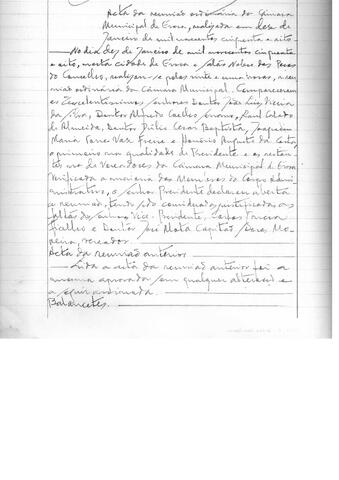 Acta da reunião ordinária da Câmara
Municipal de Évora, realizada em dez de
Janeiro de mil novecentos cinquenta e oito.
No dia dez de Janeiro de mil novecentos cinquenta
e oito, nesta cidade de Évora e Salão Nobre dos Paços
do Concelho, realizou-se pelas vinte e uma horas, a reu-
nião ordinária da Câmara Municipal. Compareceram
os Excelentíssimos Senhores Doutor João Luís Vieira
da Silva, Doutor Alfredo Coelho, Raul
de Almeida, Doutor Dúlio César Baptista, Joaquim
Maria Vaz Freire e Honório Augusto da Costa,
o primeiro na qualidade de Presidente e os restan-
tes na de Vereadores da Câmara Municipal de Évora.
Verificada a maioria dos Membros do Corpo Admi-
nistrativo, o Senhor Presidente declarou aberta
a reunião, tendo sido consideradas justificadas as
faltas dos Senhores Vice-Presidente, Carlos
e Doutor José Mota Capitão, Mo-
reira, vereador
Acta da reunião anterior
Lida a acta da reunião anterior foi a
mesma aprovada sem qualquer alteração e
a seguir assinada.
Balancetes.